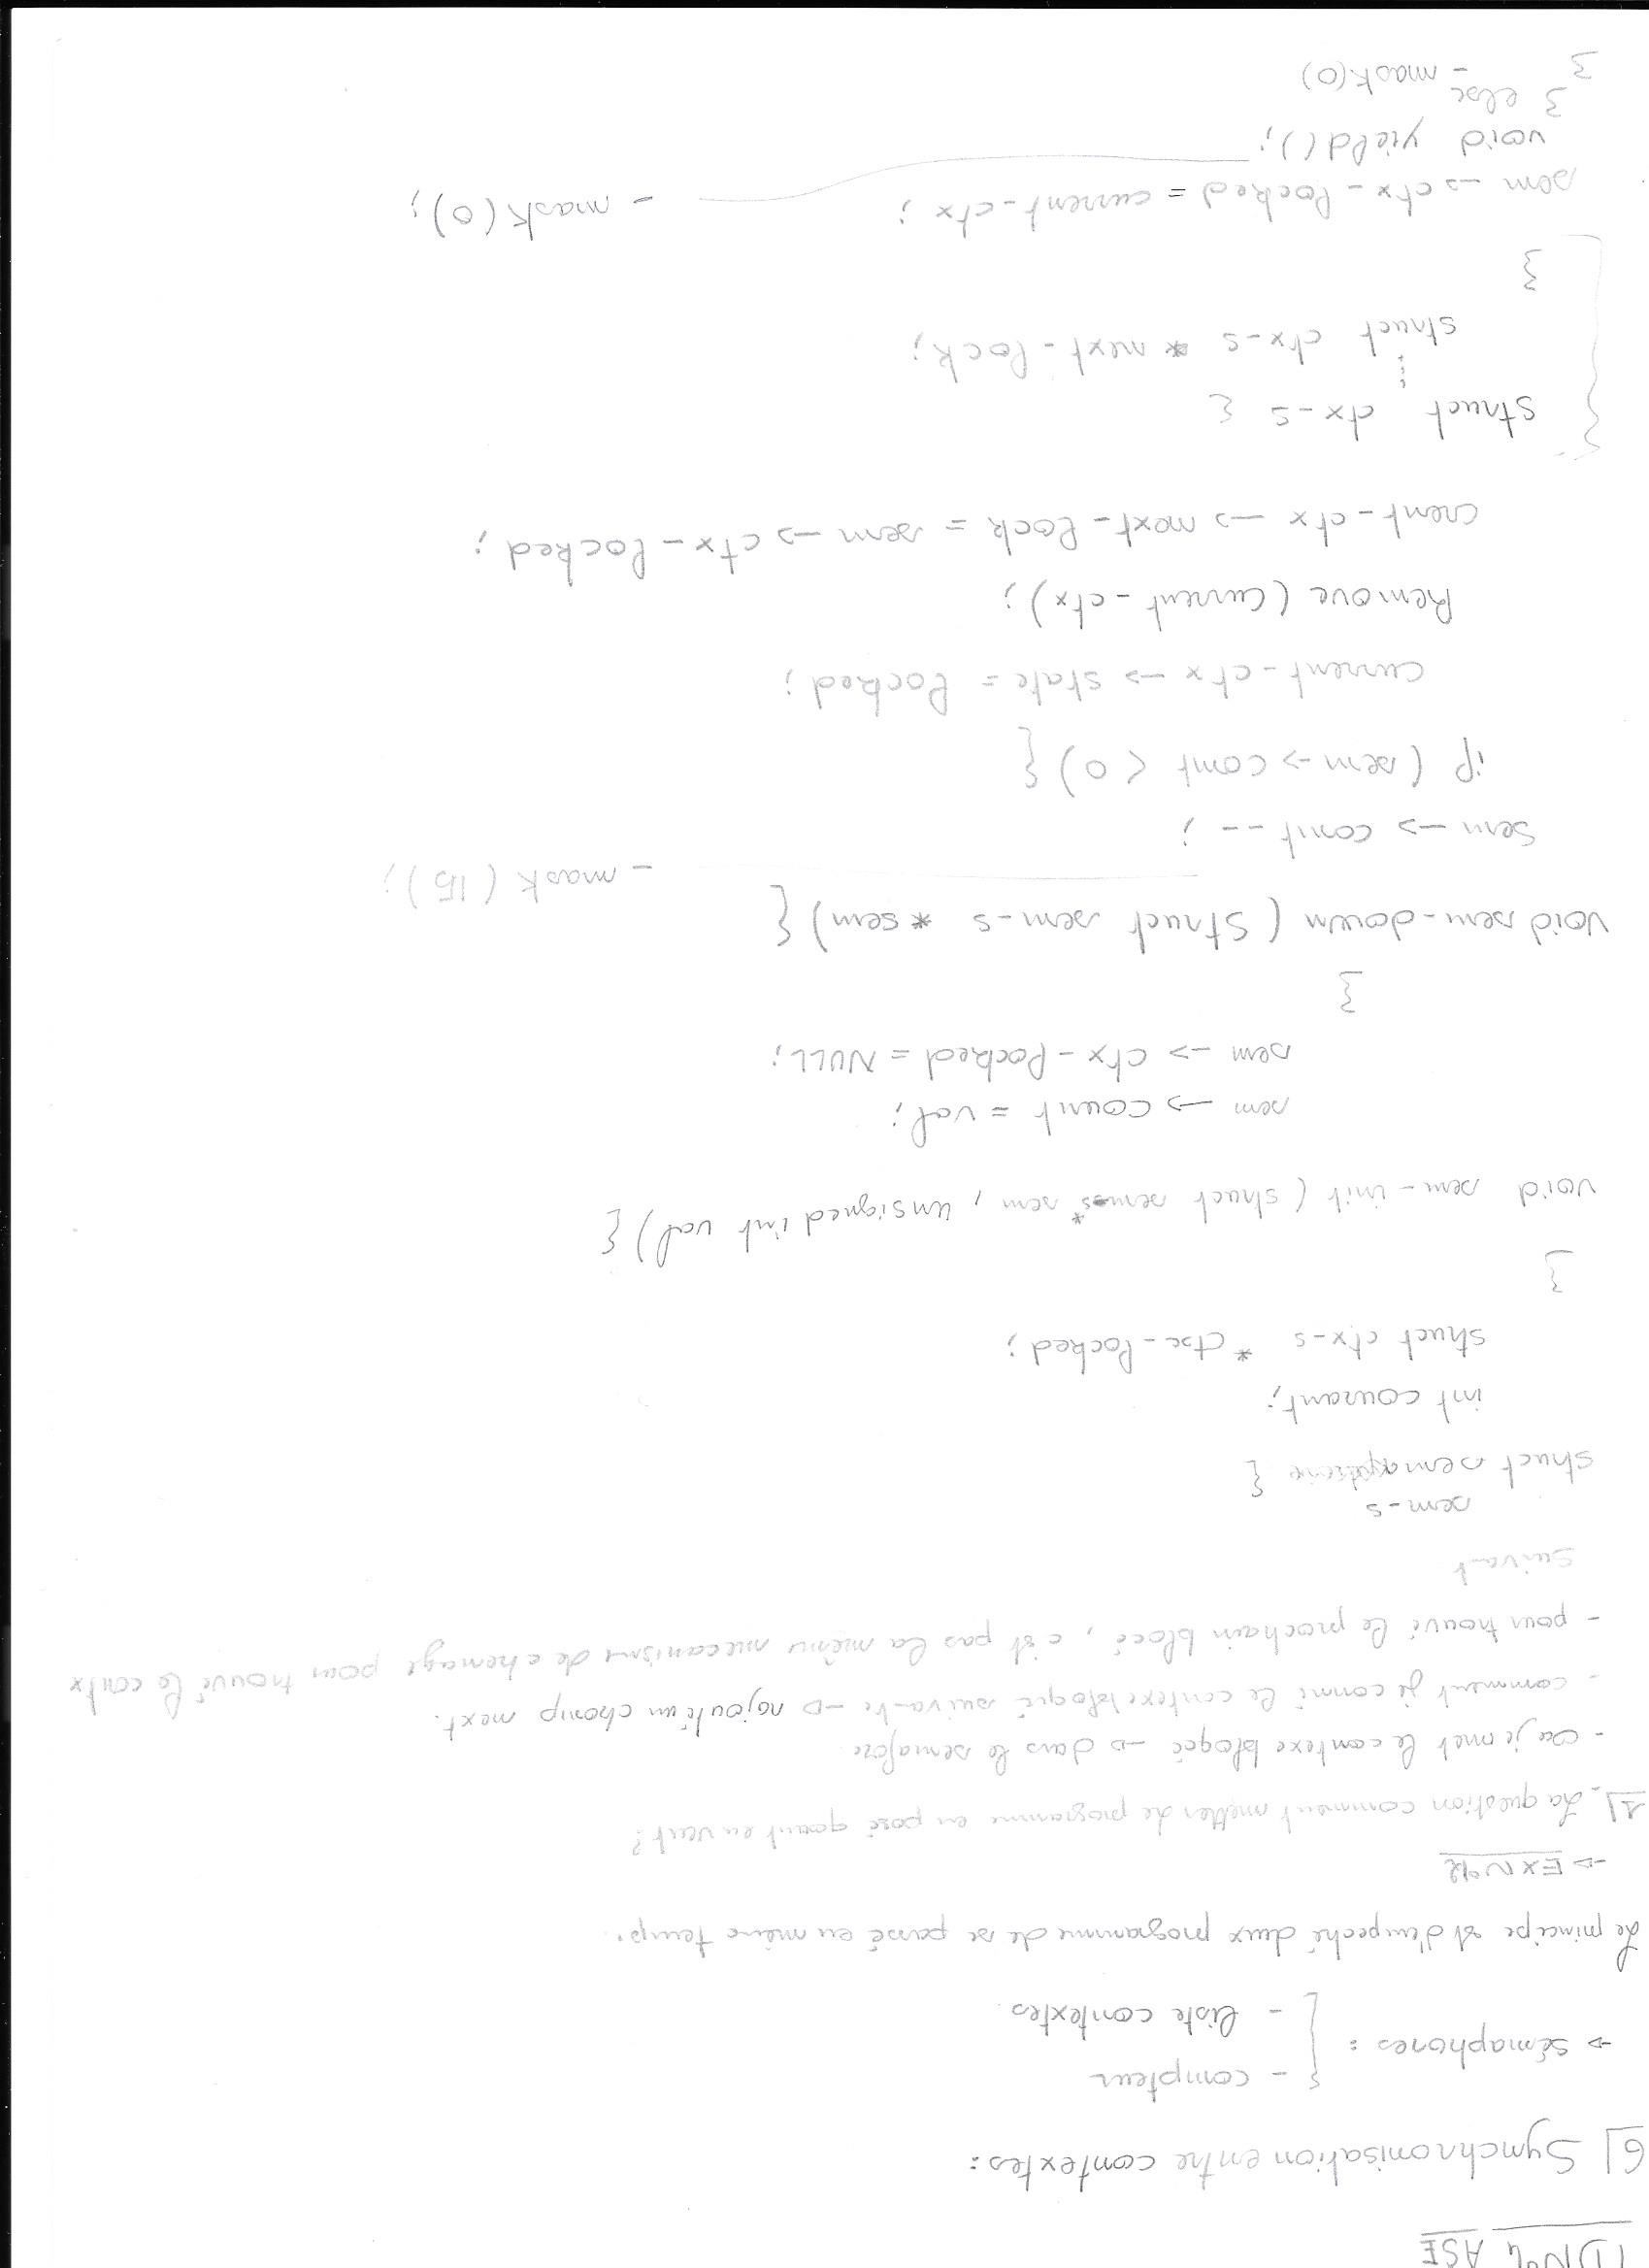 TDN°4 ASE
6] Synchronisation entre contextes:
→ sémaphores : { - compteur
- liste contextes.
Le principe est d'empeché deux programme de se passé en même temp.
→ EXN°12
1]. La question comment metter le programme en posé quant en veut?
- Ou je met le contexe bloqcé → dans le semafore.
- comment je conné le contexe bloqué suivante → rajouté un chomp next.
- pour trouvé le prochain blocé, c'st pas la même mecanisme de chenage pour trouvé le contx
suivant
sem-s
struct {
int courant;
struct ctx-s *ctx-locked;
}
void sem-init (struct sem-s* sem, unsigned int val) {
sem → count = val;
sem → ctx-locked = NULL;
}
void sem-down (struct sem-s *sem) {
- mask (15);
sem → cont --;
if (sem → cont < 0) {
current-ctx → state = locked;
Remove (current-ctx);
crent-ctx → next-lock = sem → ctx-locked;
{ struct ctx-s {
⋮
struct ctx-s * next-lock;
}
sem → ctx-locked = current-ctx; - mask(0);
void yield();
} else
} - mask(0)